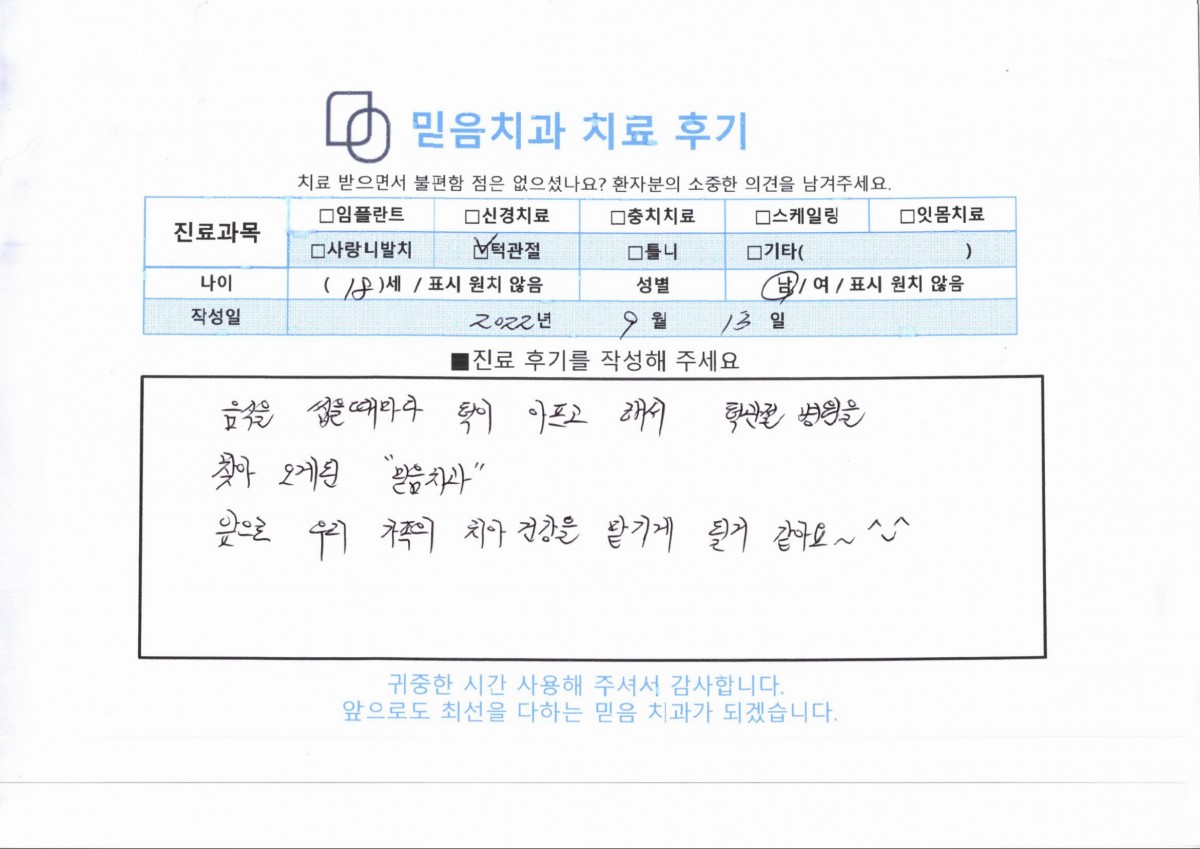 믿음치과 치료 후기
치료 받으면서 불편함 점은 없으셨나요? 환자분의 소중한 의견을 남겨주세요.
진료과목 □임플란트 □신경치료 □충치치료 □스케일링 □잇몸치료
□사랑니발치 ☑턱관절 □틀니 □기타( )
나이 ( 18 )세 / 표시 원치 않음 성별 남 / 여 / 표시 원치 않음
작성일 2022년 9월 13일
■진료 후기를 작성해 주세요
음식을 씹을때마다 턱이 아프고 해서 턱관절 병원을
찾아 오게된 "믿음치과"
앞으로 우리 가족의 치아 건강을 맡기게 될거 같아요~ ^_^
귀중한 시간 사용해 주셔서 감사합니다.
앞으로도 최선을 다하는 믿음 치과가 되겠습니다.